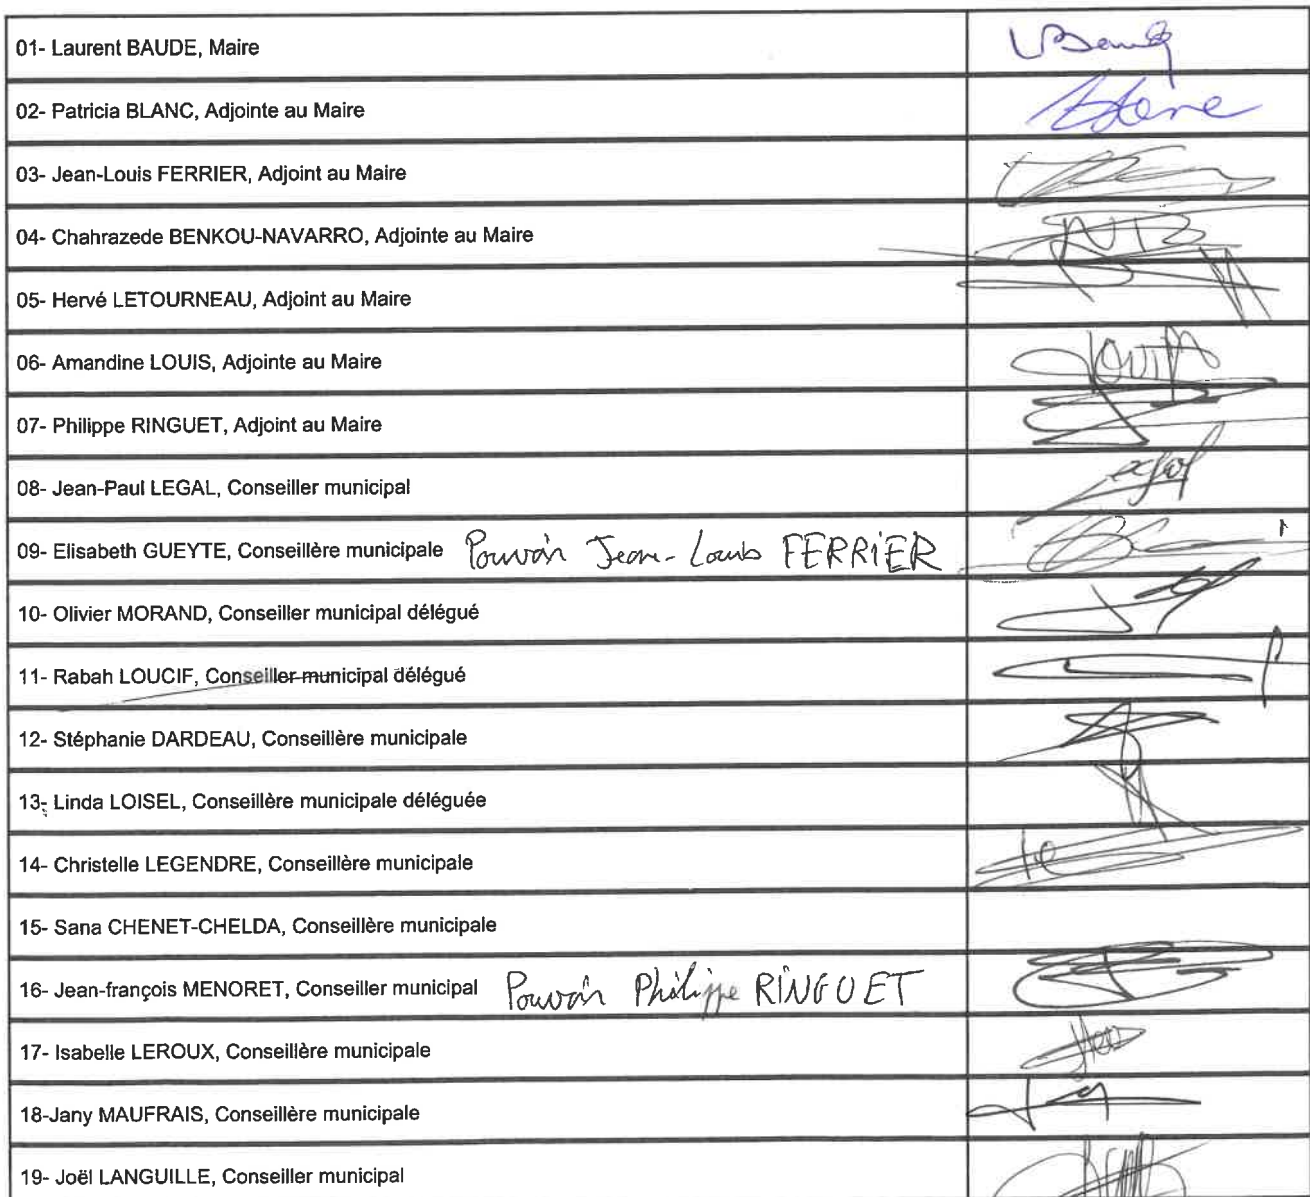 01- Laurent BAUDE, Maire
02- Patricia BLANC, Adjointe au Maire
03- Jean-Louis FERRIER, Adjoint au Maire
04- Chahrazede BENKOU-NAVARRO, Adjointe au Maire
05- Hervé LETOURNEAU, Adjoint au Maire
06- Amandine LOUIS, Adjointe au Maire
07- Philippe RINGUET, Adjoint au Maire
08- Jean-Paul LEGAL, Conseiller municipal
09- Elisabeth GUEYTE, Conseillère municipale Pouvoir Jean-Louis FERRIER
10- Olivier MORAND, Conseiller municipal délégué
11- Rabah LOUCIF, Conseiller municipal délégué
12- Stéphanie DARDEAU, Conseillère municipale
13- Linda LOISEL, Conseillère municipale déléguée
14- Christelle LEGENDRE, Conseillère municipale
15- Sana CHENET-CHELDA, Conseillère municipale
16- Jean-françois MENORET, Conseiller municipal Pouvoir Philippe RINGUET
17- Isabelle LEROUX, Conseillère municipale
18-Jany MAUFRAIS, Conseillère municipale
19- Joël LANGUILLE, Conseiller municipal